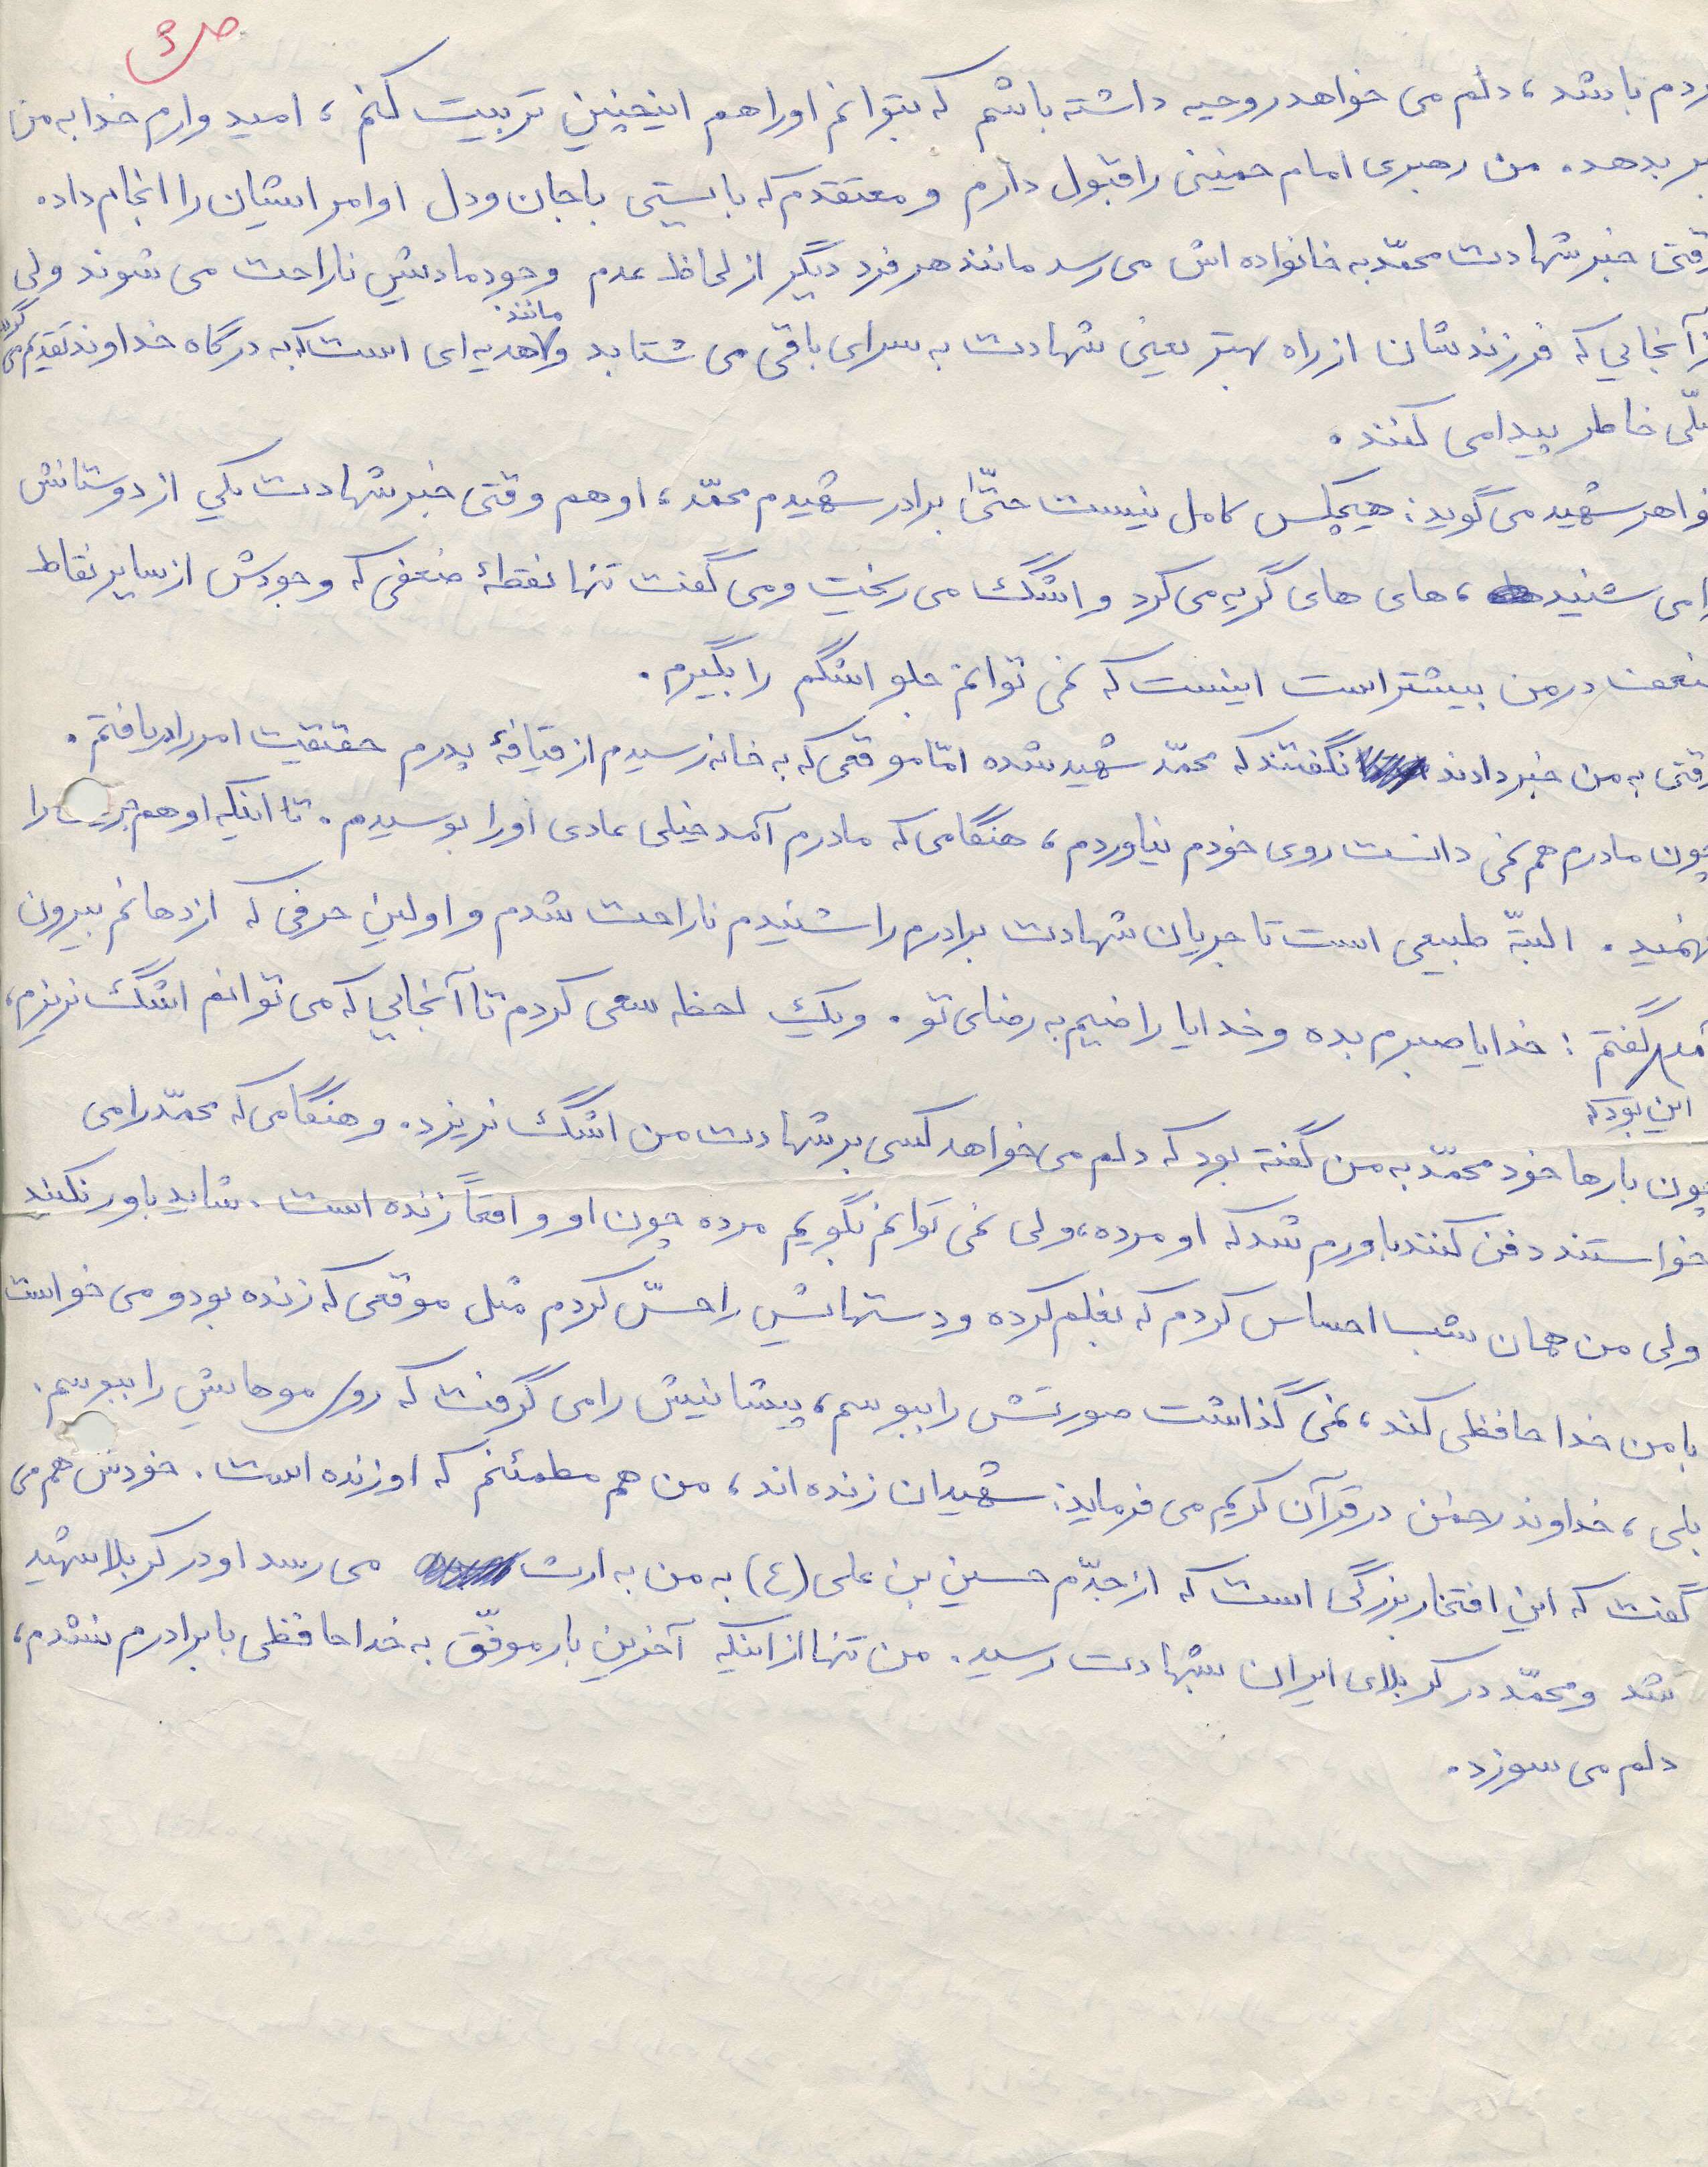 ص ۳
ردم باشد، دلم می خواهد روحیه داشته باشم که بتوانم او را هم اینچنین تربیت کنم، امیدوارم خدا به من
بر بدهد. من رهبری امام خمینی را قبول دارم و معتقدم که بایستی با جان و دل اوامر ایشان را انجام داد.
وقتی خبر شهادت محمّد به خانواده اش می رسد مانند هر فرد دیگر از لحاظ عدم وجود مادیش ناراحت می شوند ولی
از آنجایی که فرزندشان از راه بهتر یعنی شهادت به سرای باقی می شتابد و مانند هدیه ای است که به درگاه خداوند تقدیم می
سلّی خاطر پیدا می کنند.
خواهر شهید می گوید: هیچکس کامل نیست حتّی برادر شهیدم محمّد، او هم وقتی خبر شهادت یکی از دوستانش
را می شنید، های های گریه می کرد و اشگ می ریخت و می گفت تنها نقطهٔ ضعفی که وجودش از سایر نقاط
ضعف در من بیشتر است اینست که نمی توانم جلو اشگم را بگیرم.
وقتی به من خبر دادند نگفتند که محمّد شهید شده امّا موقعی که به خانه رسیدم از قیافهٔ پدرم حقیقت امر را دریافتم.
چون مادرم هم نمی دانست روی خودم نیاوردم، هنگامی که مادرم آمد خیلی عادی او را بوسیدم. تا اینکه او هم جریان را
فهمید. البتّه طبیعی است تا جریان شهادت برادرم را شنیدم ناراحت شدم و اولین حرفی که از دهانم بیرون
آمد این بود که گفتم: خدایا صبرم بده و خدایا راضیم به رضای تو. و یک لحظه سعی کردم تا آنجایی که می توانم اشگ نریزم،
چون بارها خود محمّد به من گفته بود که دلم می خواهد کسی بر شهادت من اشگ نریزد. و هنگامی که محمّد را می
خواستند دفن کنند باورم شد که او مرده، ولی نمی توانم بگویم مرده چون او واقعاً زنده است. شاید باور نکنید
ولی من همان شب احساس کردم که بغلم کرده و دستهایش را حسّ کردم مثل موقعی که زنده بود و می خواست
با من خداحافظی کند، نمی گذاشت صورتش را ببوسم، پیشانیش را می گرفت که روی موهایش را ببوسم.
بلی، خداوند رحمن در قرآن کریم می فرماید: شهیدان زنده اند، من هم مطمئنم که او زنده است. خودش هم می
گفت که این افتخار بزرگی است که از جدّم حسین بن علی (ع) به من به ارث می رسد او در کربلا شهید
شد و محمّد در کربلای ایران بشهادت رسید. من تنها از اینکه آخرین بار موفّق به خداحافظی با برادرم نشدم،
دلم می سوزد.